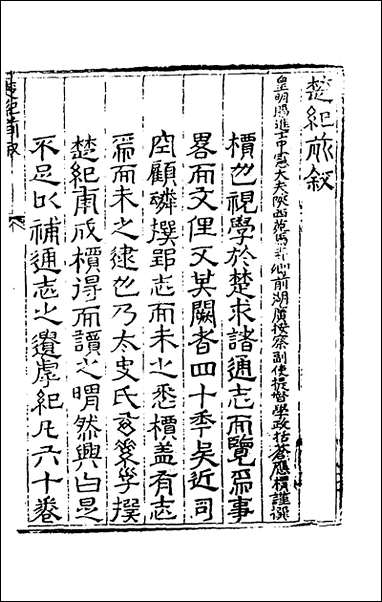 楚紀前敘
皇明賜進士中憲大夫陝西苑馬寺卿前湖廣按察副使提督學政括蒼應檟謹撰
檟也視學於楚求諸通志而覽焉事
畧而文俚又其闕者四十季矣近司
空顧璘撰距志而未之悉檟盖有志
焉而未之逮也乃太史氏玄學撰
楚紀甫成檟得而讀之喟然興曰是
不足㠯補通志之遺虖紀凡六十卷
楚紀前敘